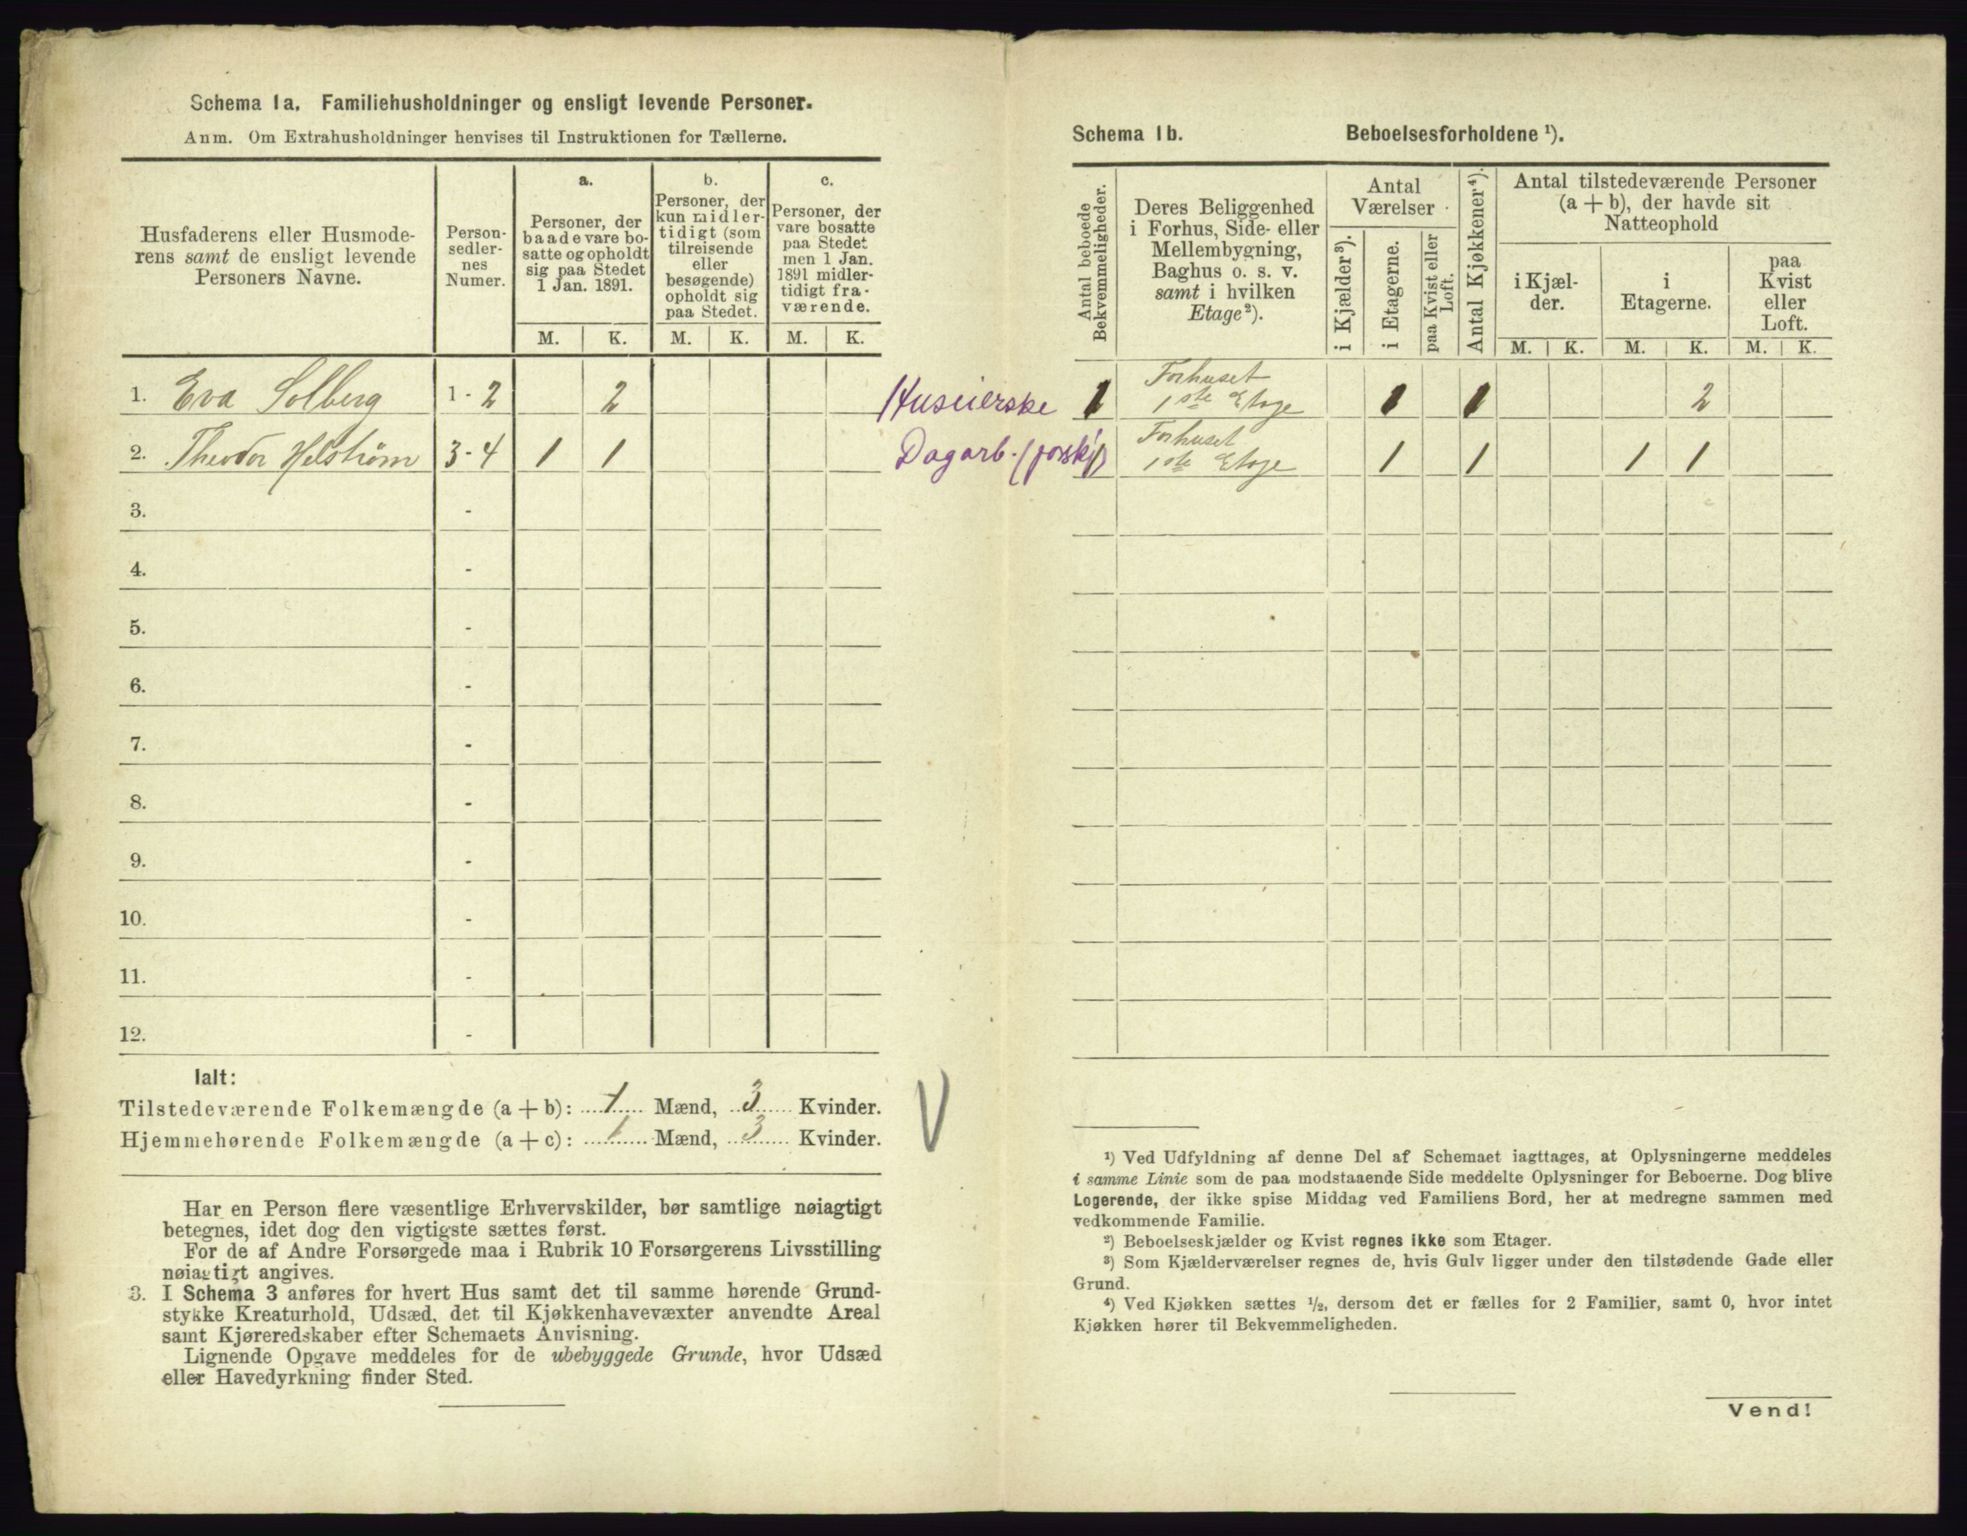 Schema 1a. Familiehusholdninger og ensligt levende Personer.
Anm. Om Extrahusholdninger henvises til Instruktionen for Tællerne.
Husfaderens eller Husmode-
rens samt de ensligt levende
Personers Navne.
Person-
sedler-
nes
Numer.
a.
Personer, der
baade vare bo-
satte og opholdt
sig paa Stedet
1 Jan. 1891.
b.
Personer, der
kun midler-
tidigt (som
tilreisende
eller
besøgende)
opholdt sig
paa Stedet.
c.
Personer, der
vare bosatte
paa Stedet
men 1 Jan.
1891 midler-
tidigt fra-
værende.
M. K. M. K. M. K.
1. Eva Solberg 1 - 2 2
2. Theodor Helstrøm 3 - 4 1 1
3. -
4. -
5. -
6. -
7. -
8. -
9. -
10. -
11. -
12. -
Ialt:
Tilstedeværende Folkemængde (a + b): 1 Mænd, 3 Kvinder.
Hjemmehørende Folkemængde (a + c): 1 Mænd, 3 Kvinder.
V
Har en Person flere væsentlige Erhvervskilder, bør samtlige nøiagtigt
betegnes, idet dog den vigtigste sættes først.
For de af Andre Forsørgede maa i Rubrik 10 Forsørgerens Livsstilling
nøiagtigt angives.
3. I Schema 3 anføres for hvert Hus samt det til samme hørende Grund-
stykke Kreaturhold, Udsæd, det til Kjøkkenhavevæxter anvendte Areal
samt Kjøreredskaber efter Schemaets Anvisning.
Lignende Opgave meddeles for de ubebyggede Grunde, hvor Udsæd
eller Havedyrkning finder Sted.
Schema 1b. Beboelsesforholdene ¹).
Antal beboede
Bekvemmeligheder.
Deres Beliggenhed
i Forhus, Side- eller
Mellembygning,
Baghus o. s. v.
samt i hvilken
Etage²).
Antal
Værelser
i Kjælder³).
i Etagerne.
paa Kvist eller
Loft.
Antal Kjøkkener⁴).
Antal tilstedeværende Personer
(a + b), der havde sit
Natteophold
i Kjæl-
der.
i
Etagerne.
paa
Kvist
eller
Loft.
M. K. M. K. M. K.
Huseierske 1 Forhuset
1ste Etage 1 1 2
Dagarb. 1 Forhuset
1ste Etage 1 1 1 1
¹) Ved Udfyldning af denne Del af Schemaet iagttages, at Oplysningerne meddeles
i samme Linie som de paa modstaaende Side meddelte Oplysninger for Beboerne. Dog blive
Logerende, der ikke spise Middag ved Familiens Bord, her at medregne sammen med
vedkommende Familie.
²) Beboelseskjælder og Kvist regnes ikke som Etager.
³) Som Kjælderværelser regnes de, hvis Gulv ligger under den tilstødende Gade eller
Grund.
⁴) Ved Kjøkken sættes ½, dersom det er fælles for 2 Familier, samt 0, hvor intet
Kjøkken hører til Bekvemmeligheden.
Vend!